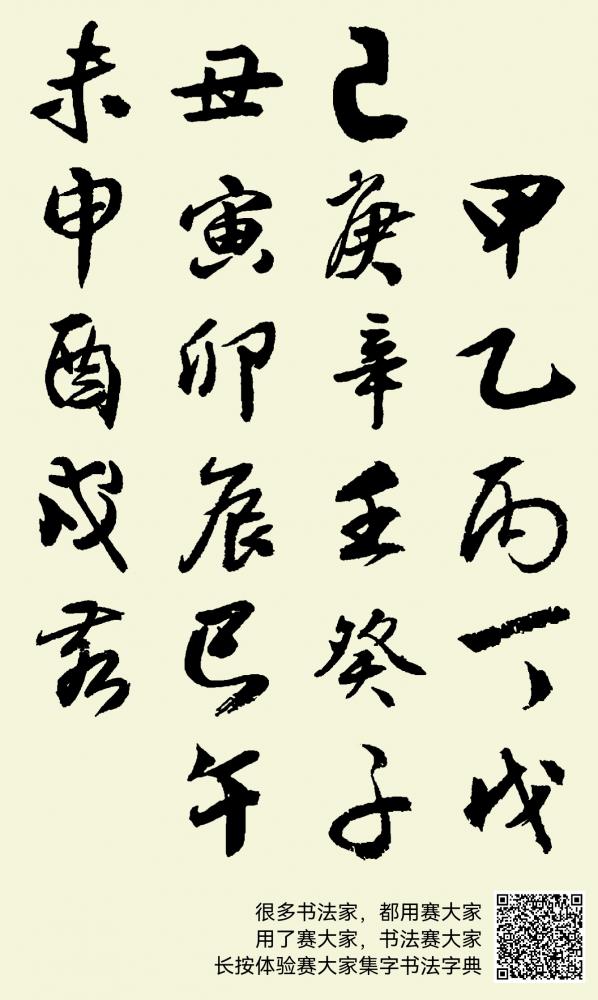 甲乙丙丁戊
己庚辛壬癸子
丑寅卯辰巳午
未申酉戌亥
很多书法家，都用赛大家
用了赛大家，书法赛大家
长按体验赛大家集字书法字典